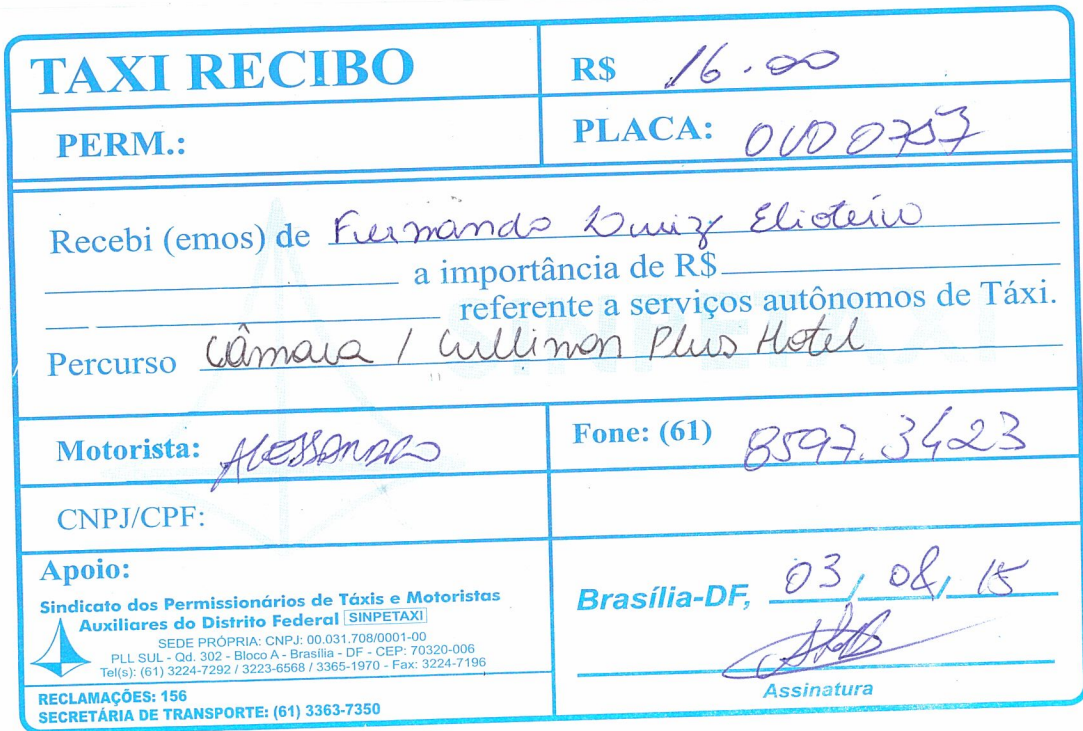 TAXI RECIBO
R$ 16.00
PERM.:
PLACA: OVD 0757
Recebi (emos) de Fernando Luiz Elioteiro
a importância de R$
referente a serviços autônomos de Táxi.
Percurso Câmara / Cullinan Plus Hotel
Motorista: ALESSANDRO
Fone: (61) 8597.3423
CNPJ/CPF:
Apoio:
Sindicato dos Permissionários de Táxis e Motoristas
Auxiliares do Distrito Federal SINPETAXI
SEDE PRÓPRIA: CNPJ: 00.031.708/0001-00
PLL SUL - Qd. 302 - Bloco A - Brasília - DF - CEP: 70320-006
Tel(s): (61) 3224-7292 / 3223-6568 / 3365-1970 - Fax: 3224-7196
RECLAMAÇÕES: 156
SECRETÁRIA DE TRANSPORTE: (61) 3363-7350
Brasília-DF, 03/08/15
Assinatura